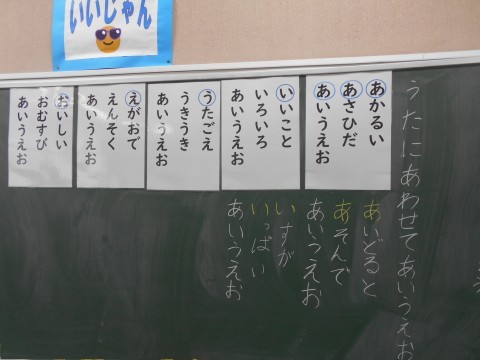 いいじゃん
うたにあわせてあいうえお
あかるい
あさひだ
あいうえお
いいこと
いろいろ
あいうえお
うたごえ
うきうき
あいうえお
えがおで
えんそく
あいうえお
おいしい
おむすび
あいうえお
あいどると
あそんで
あいうえお
いすが
いっぱい
あいうえお